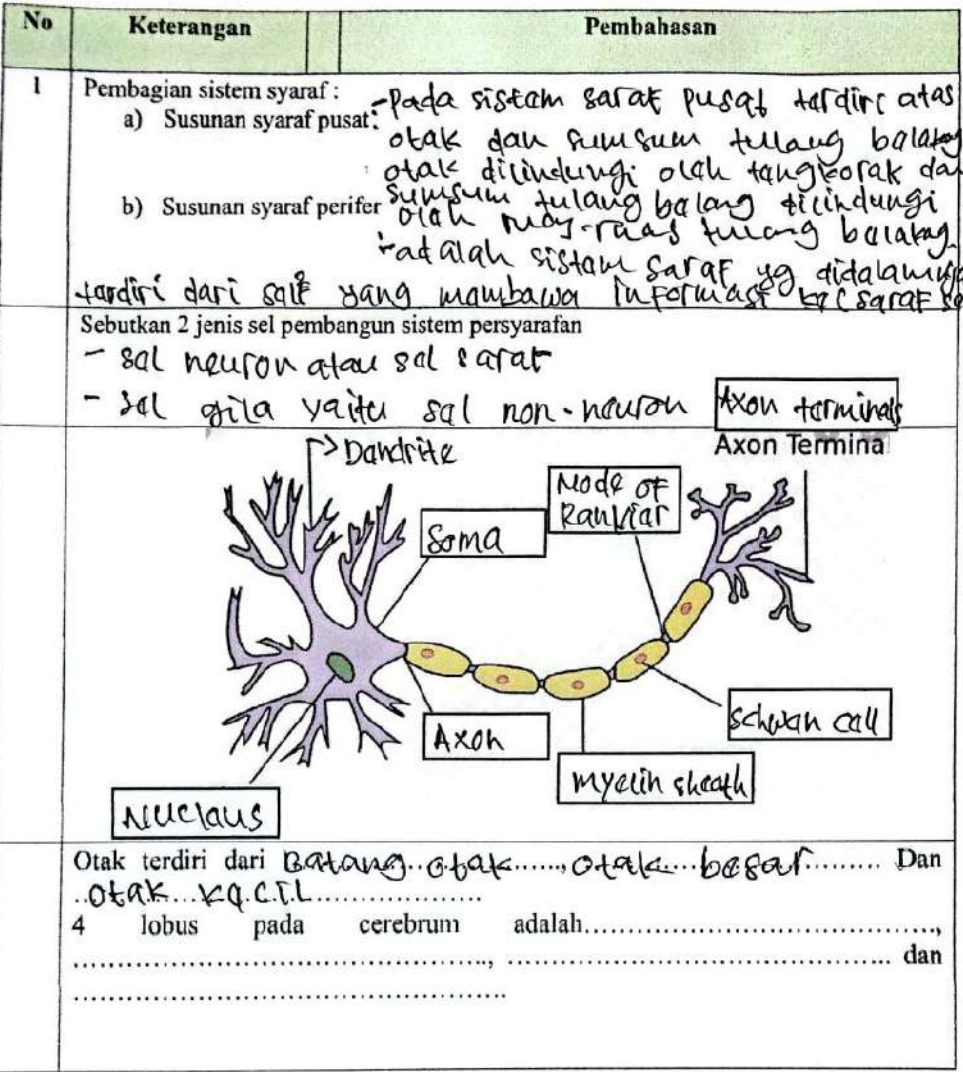 No Keterangan Pembahasan
1 Pembagian sistem syaraf :
a) Susunan syaraf pusat:
-Pada sistem saraf pusat terdiri atas
otak dan sumsum tulang balakang
otak dilindungi olah tangkorak dan
b) Susunan syaraf perifer
sumsum tulang balang dilindungi
olah ruas-ruas tulang balakang
-adalah sistam saraf yg didalamnya
terdiri dari sel² yang mambawa informasi ke sel saraf
Sebutkan 2 jenis sel pembangun sistem persyarafan
- sel neuron atau sel saraf
- sel glia yaitu sel non-neuron
Axon terminals
Axon Termina
Dendrite
Node of
Ranvier
Soma
Schwan cell
Axon
myelin sheath
Nucleus
Otak terdiri dari Batang otak......, otak....besar.......... Dan
..otak...kecil...................
4 lobus pada cerebrum adalah.....................................,
............................................., .......................................... dan
...............................................